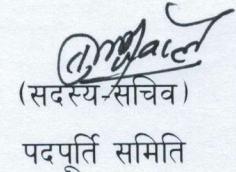 (सदस्य-सचिव)
पदपूर्ति समिति